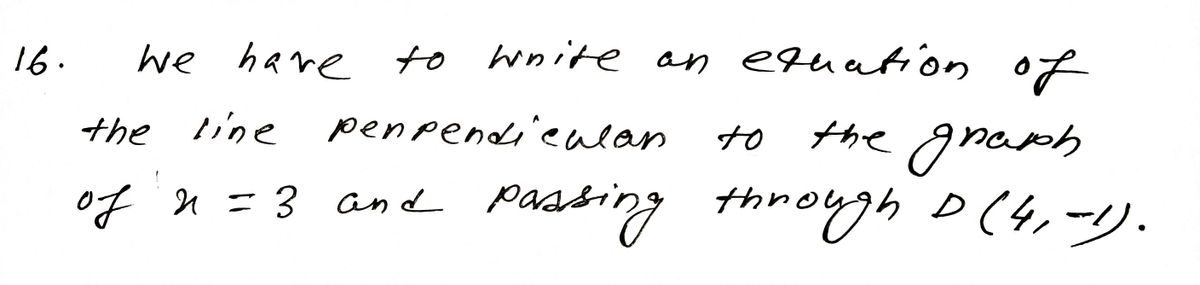 16. We have to write an equation of
the line perpendicular to the graph
of x = 3 and passing through D (4, -1).